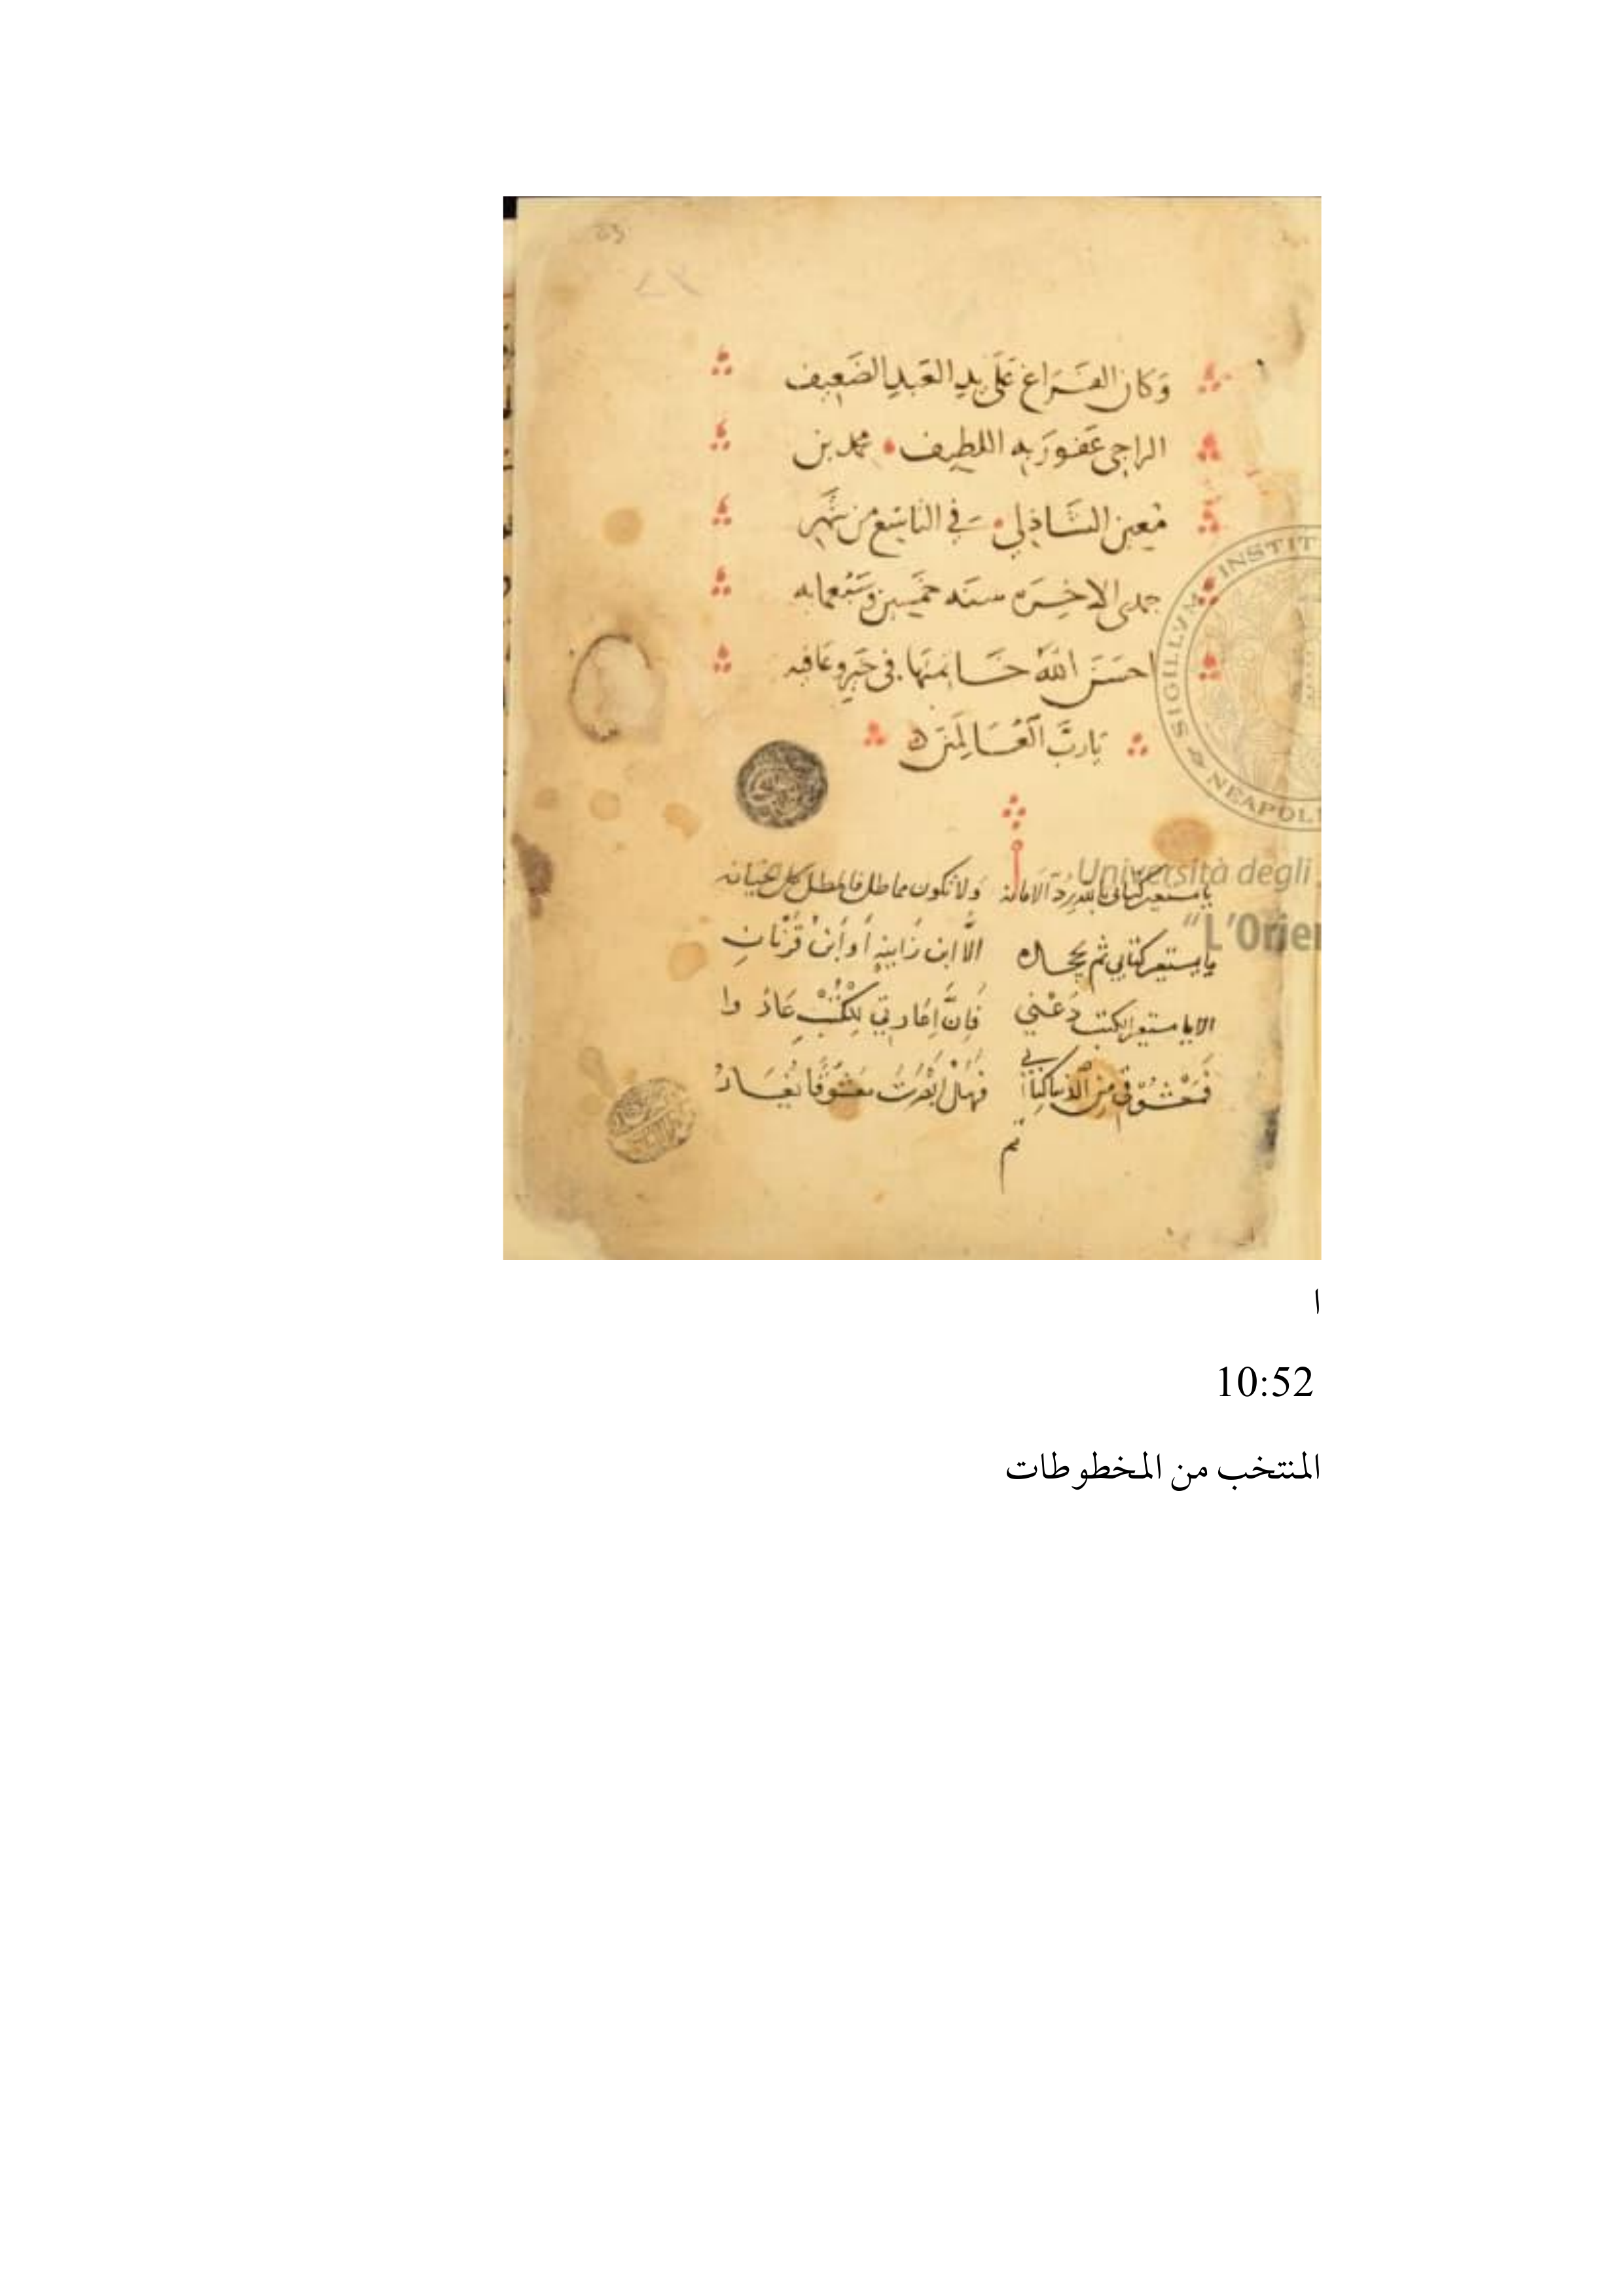 وَكان الفَرَاغ عَلَى يدِ العَبدِ الضَعِيف
الراجى عَفو رَبه اللطيف محمد بن
مُعين الشَاذِلي في التاسِع من شَهر
جمدى الاخِرَه سَنَه خمَسين وسَبعمايه
احسَنَ اللهُ خَاتمتهَا فى خَير وعَافيه
يَا ربَّ العَالمَين
يا مستعير كتابى بالله رُدّ الامانة ولا تكون مماطل فالمطل كل الخيانه
ما يستعير كتابي ثم يجحده الَّا ابن زَانيةٍ أو أبن قَرْنَانِ
الا يا مستعير الكتب دَعْني فَإنَّ إعَارتي لِلكُتْبِ عَارُ
فمَعْشُوقي من الدنيا كِتَابي فَهَلْ أبْصَرْتَ مَعْشُوقًا يُعَارُ
تم
SIGILLVM INSTIT
NEAPOL
Università degli
"L'Orien
ا
10:52
المنتخب من المخطوطات